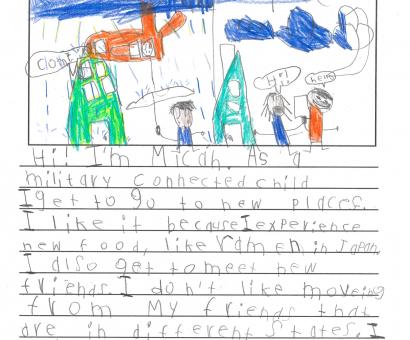 Hi!
hello
Hi! I'm Micah. As a
military connected child
I get to go to new places.
I like it because I experience
new food, like ramen in Japan.
I also get to meet new
friends. I don't like moveing
from My friends that
are in different States. I